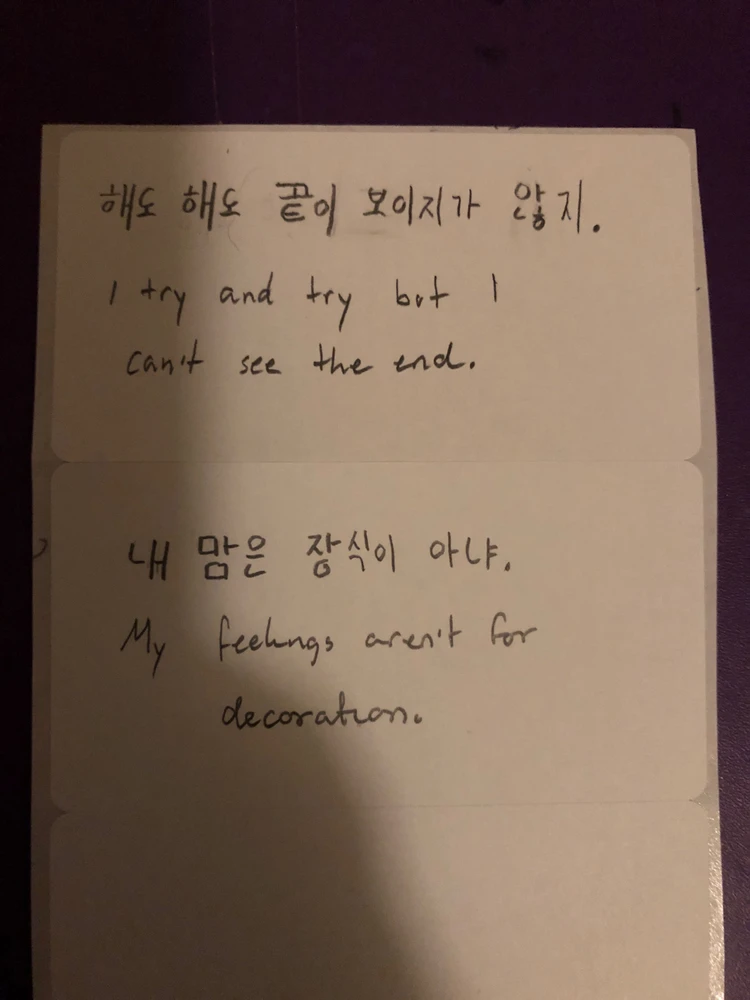 해도 해도 끝이 보이지가 않지.
I try and try but I
can't see the end.
내 맘은 장식이 아냐.
My feelings aren't for
decoration.